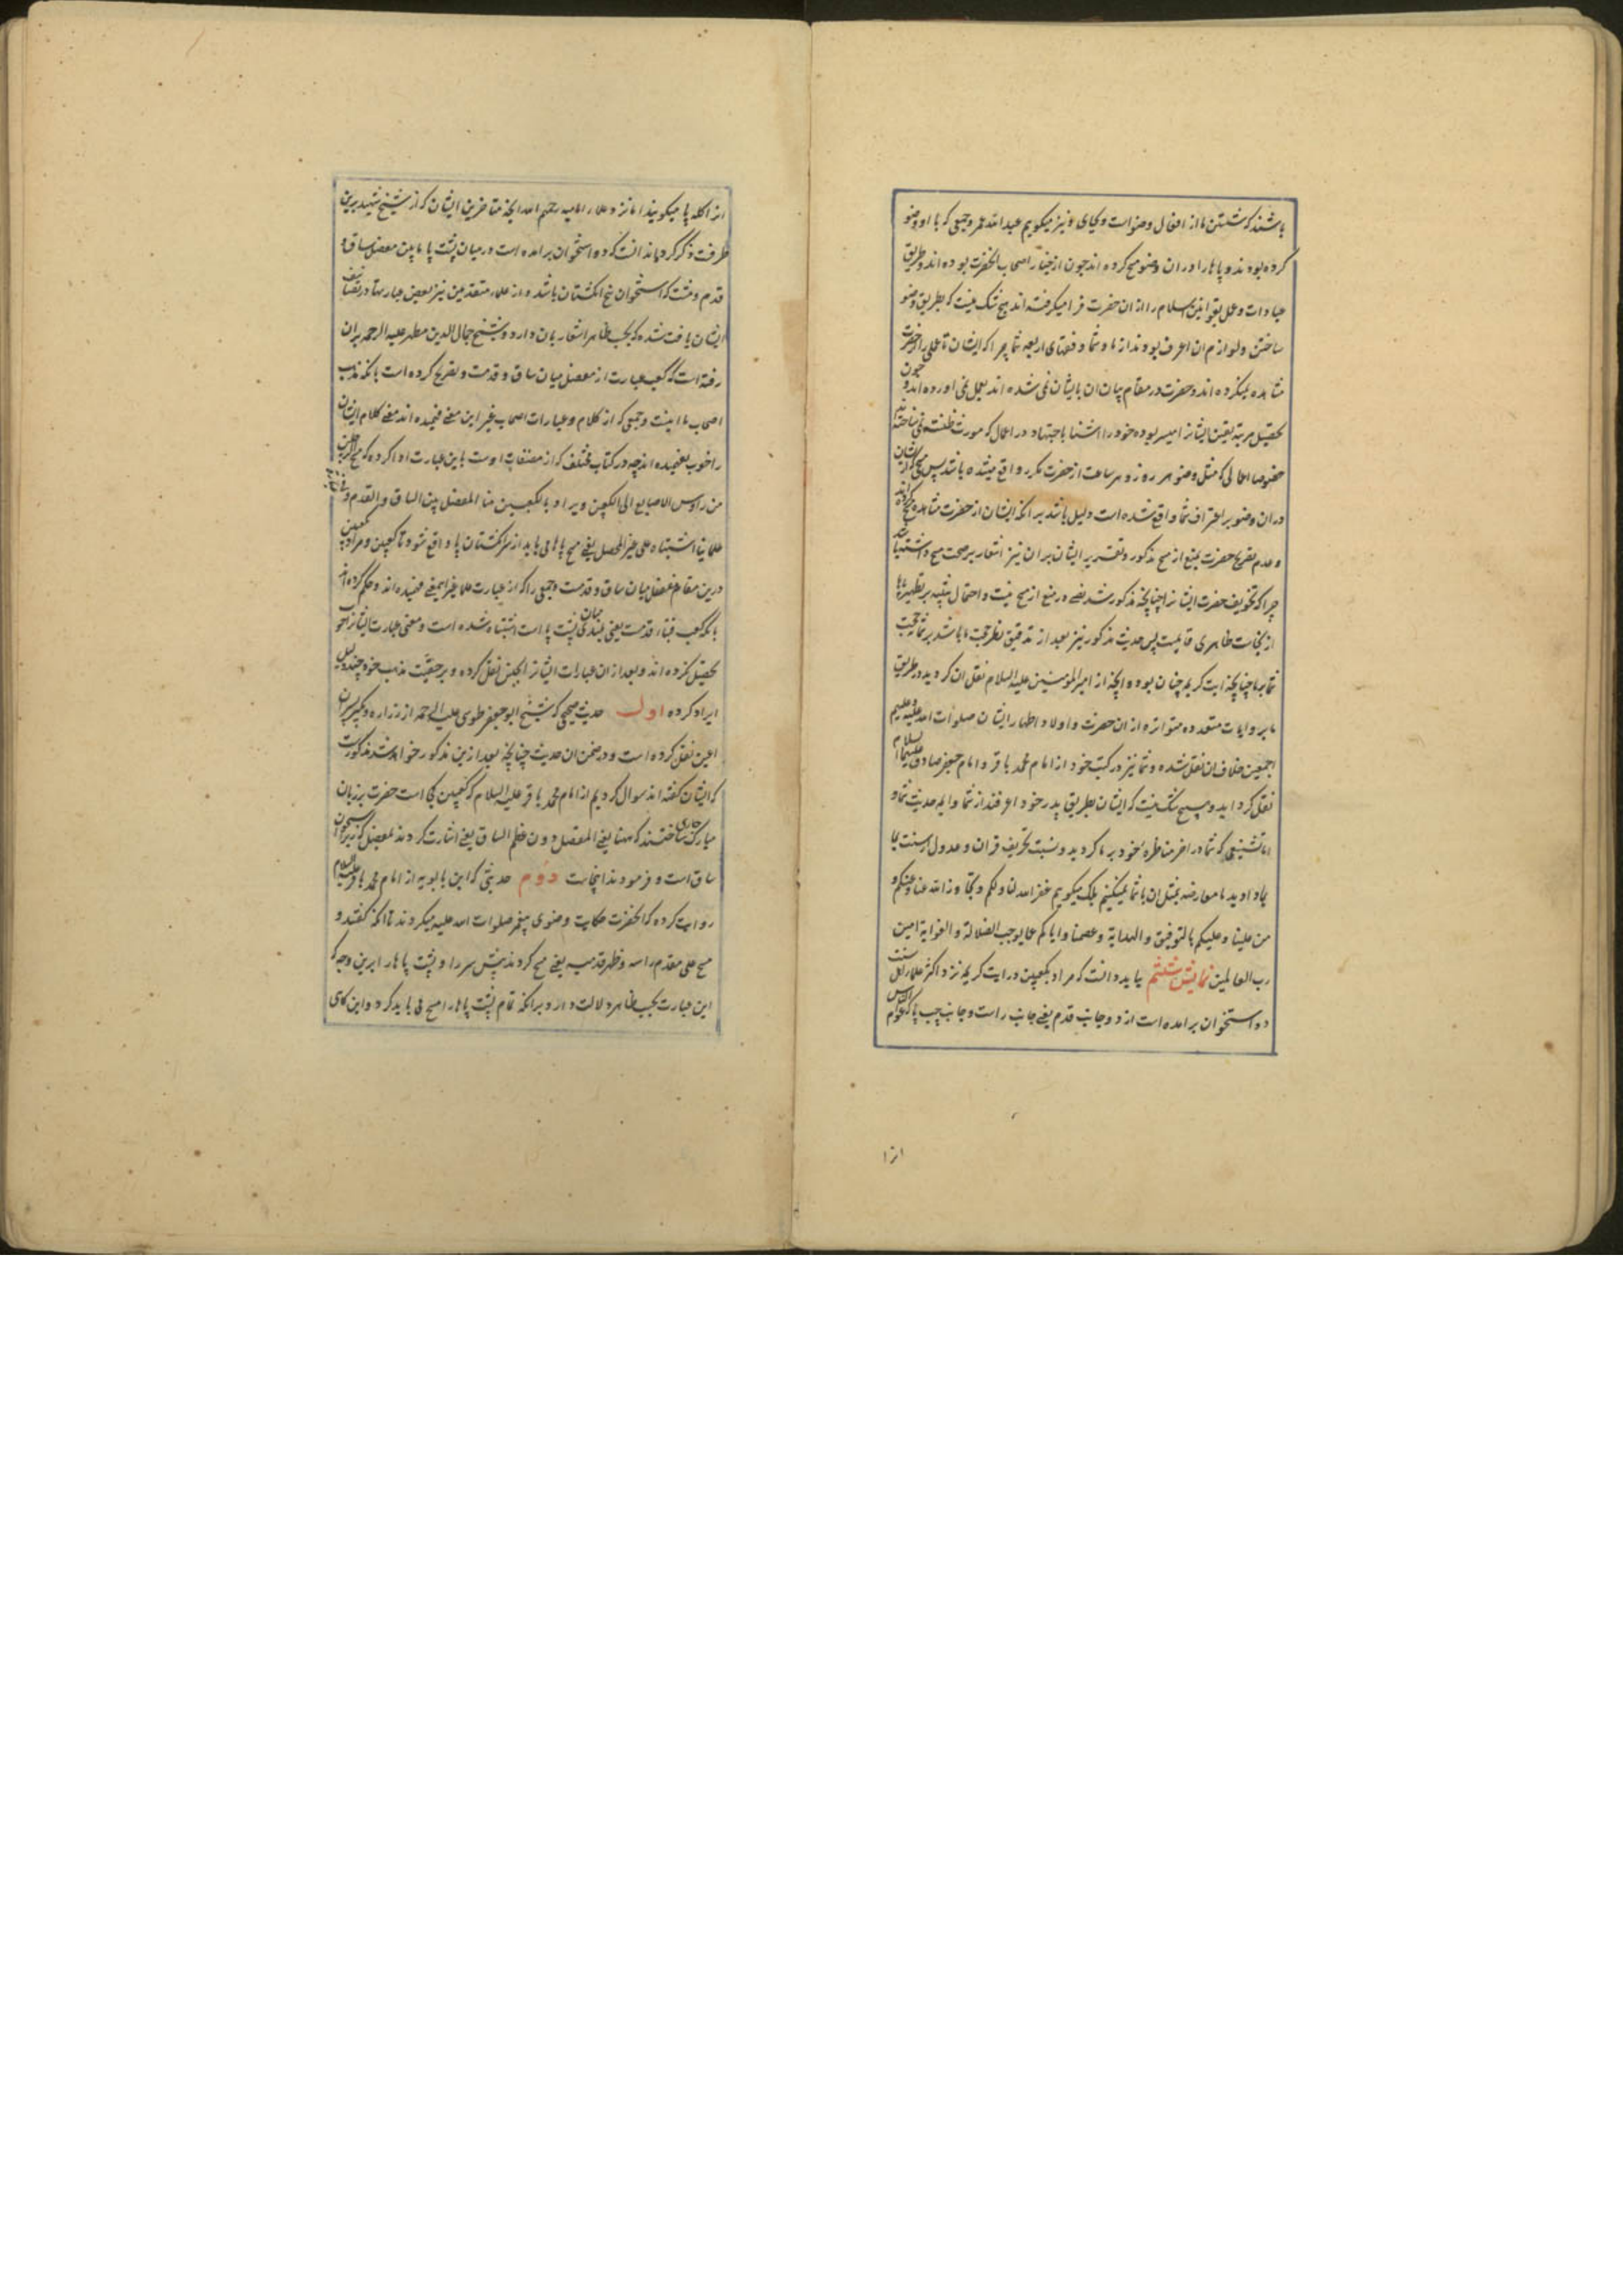 باشند که شستن ما از افعال وضو است و بجای نیز میکویم عبدالله عمر و جمعی که با او وضو
کرده بودند و پاها را در ان وضو مسح کرده اند چون از خیار اصحاب انحضرت بوده اند و طریق
عبادات و عمل بقوانین اسلام را از ان حضرت فرا میکرفته اند هیچ شک نیست که بطریق وضو
ساختن و لوازم ان اعرف بودند از ما و شما و فقهای اربعه شما چرا که ایشان تا
مشاهده میکرده اند و حضرت در مقام بیان ان بایشان می شده اند بعمل می اورده اند و چون
تحصیل مرتبه یقین ایشانرا میسر بوده خود را اشنا باجتهاد در اعمال که مورث ظنست نمی ساخته اند
خصوصا اعمالی که مثل وضو هر روز و هر ساعت از حضرت مکرر واقع میشده باشد پس مسح که از ایشان
در ان وضو بر اعتراف شما واقع شده است دلیل باشد بر انکه ایشان از حضرت مشاهده مسح کرده اند
و عدم تصریح حضرت بمنع از مسح مذکور و تقریر ایشان بران نیز اشعار بر صحت مسح داشته باشد
چرا که تخویف حضرت ایشانرا چنانچه مذکور شد نص در منع از مسح نیست و احتمال تنبیه بر تطهیر پاها
از نجاست ظاهری قایمست پس حدیث مذکور نیز بعد از تدقیق نظر حجت ما باشد بر شما نه حجت
شما بر ما چنانچه ایت کریمه چنان بود و انچه از امیرالمومنین علیه السلام نقل ان کردید در طریق
ما بروایات متعدده متواتره از ان حضرت و اولاد اطهار ایشان صلوات الله علیه و علیهم
اجمعین خلاف ان نقل شده و شما نیز در کتب خود از امام محمد باقر و امام جعفر صادق علیهما السلام
نقل کرده اید و هیچ شک نیست که ایشان بطریق پدر خود اعرفند از شما و ایمه حدیث شما و
اما تشنیعی که شما در اخر مناظره خود بر ما کردید و نسبت تحریف قران و عدول از سنت بما
دادید ما معارضه بمثل ان باشما نمیکنیم بلکه میکویم غفر الله لنا و لکم و تجاوز الله عنا و عنکم و
من علینا و علیکم بالتوفیق و الهدایة و عصمنا و ایاکم عما یوجب الضلالة و الغوایة امین
رب العالمین نمایش ششم بباید دانست که مراد بکعبین در ایت کریمه نزد اکثر علماء اهل سنت
دو استخوان برامده است از دو جانب قدم یعنی جانب راست و جانب چپ پا که عوام الناس
از ا
از اکله پا میکویند اما نزد علماء امامیه رحمهم الله انچه متاخرین ایشان که از شیخ شهید برین
طرفست ذکر کرده اند انست که دو استخوان برامده است در میان پشت پا مابین مفصل ساق و
قدم و مشت که استخوان بیخ انکشتان باشد و از علماء متقدمین نیز بعضی عبارتها در تصانیف
ایشان یافت شده که بحسب ظاهر اشعار بان دارد و شیخ جمال الدین مطهر علیه الرحمه بران
رفته است که کعب عبارت از مفصل میان ساق و قدمست و تصریح کرده است بانکه مذهب
اصحاب ما اینست و جمعی که از کلام و عبارات اصحاب غیر این معنی فهمیده اند معنی کلام ایشان
را خوب نفهمیده اند چه در کتاب مختلف که از مصنفات اوست باین عبارت ادا کرده که مسح الرجلین
من رؤس الاصابع الی الکعبین و یراد بالکعبین هنا المفصل بین الساق و القدم و فی عبارة
علماینا اشتباه علی غیر المحصل یعنی مسح پاها می باید از سر انکشتان پا واقع شود تا کعبین و مراد بکعبین
درین مقام مفصل میان ساق و قدمست و جمعی را که از عبارت علما غیر این معنی فهمیده اند و حکم کرده اند
بانکه کعب قبه قدمست یعنی بلندی میان پشت پا است اشتباه شده است و معنی عبارت ایشانرا خوب
تحصیل نکرده اند و بعد از ان عبارات ایشانرا بجنس نقل کرده و بر حقیت مذهب خود چند دلیل
ایراد کرده اول حدیث صحیحی که شیخ ابو جعفر طوسی علیه الرحمه از زراره و بکیر پسران
اعین نقل کرده است و در ضمن ان حدیث چنانچه بعد ازین مذکور خواهد شد مذکورست
که ایشان کفته اند سوال کردیم از امام محمد باقر علیه السلام که کعبین کجا است حضرت بر زبان
مبارک جاری ساختند که ههنا یعنی المفصل دون عظم الساق یعنی اشارت کردند بمفصل که زیر استخوان
ساق است و فرمودند اینجاست دوم حدیثی که ابن بابویه از امام محمد باقر علیه السلام
روایت کرده که انحضرت حکایت وضوی پیغمبر صلوات الله علیه میکردند تا انکه کفتند و
مسح علی مقدم راسه و ظهر قدمیه یعنی مسح کردند پیش سر را و پشت پاها را برین وجه که
این عبارت بحسب ظاهر دلالت دارد بر انکه تمام پشت پاها را مسح می باید کرد و این کاری